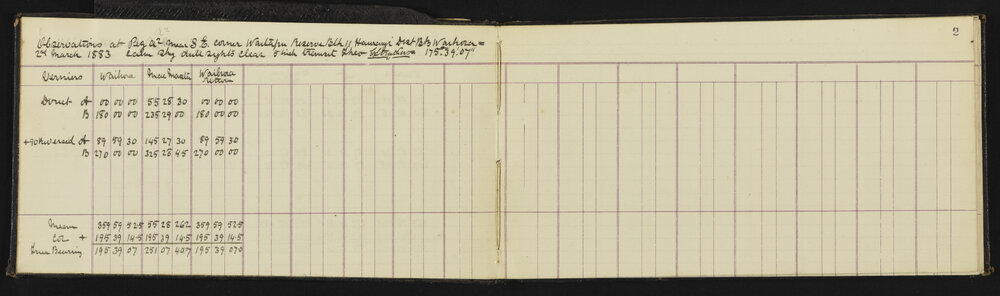 2
Observations at Peg A² near S.E. corner Waitapu Reserve Blk 11 Dist BB Waihora =
2d March 1883 Calm Sky dull sights clear 5 inch transit theo 175.39.07"
Verniers Waihora Waihora return
Direct A 00 00 00 55 28 30 00 00 00
B 180 00 00 235 29 00 180 00 00
+90 Reversed A 89 59 30 145 27 30 89 59 30
B 270 00 00 325 28 45 270 00 00
Mean 359 59 52.5 55 28 26.2 359 59 52.5
Cor + 195 39 14.5 195 39 14.5 195 39 14.5
True Bearing 195 39 07 251 07 40.7 195 39 07.0